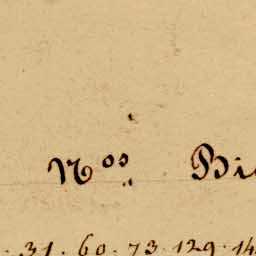 Nos. Bi
. 31. 60. 73. 129. 14